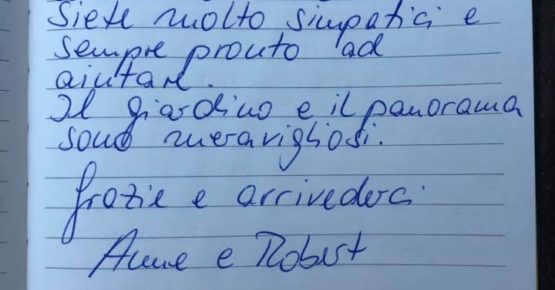 Siete molto simpatici e
sempre pronto ad
aiutare.
Il giardino e il panorama
sono meravigliosi.
Grazie e arrivederci
Anne e Robert